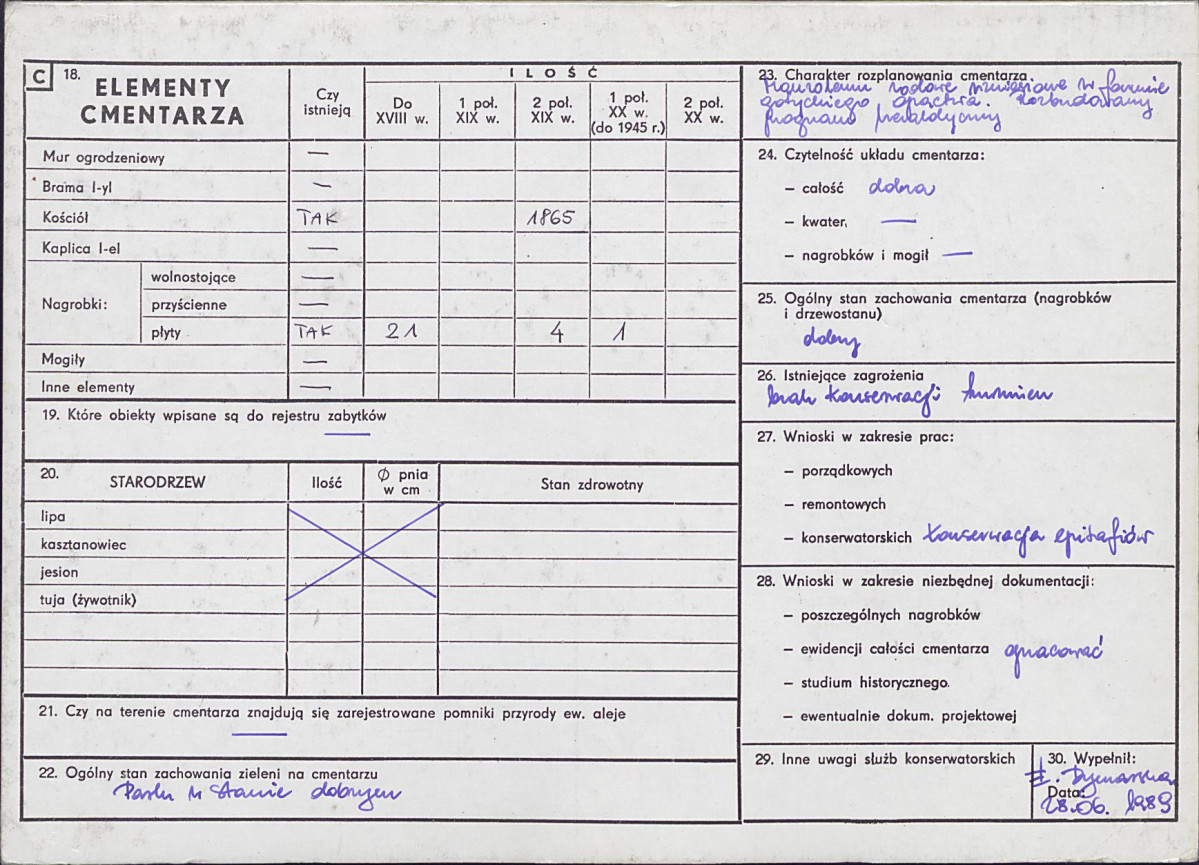 C 18. ELEMENTY CMENTARZA
Czy istnieją
ILOŚĆ
Do XVIII w.
1 poł. XIX w.
2 poł. XIX w.
1 poł. XX w. (do 1945 r.)
2 poł. XX w.
Mur ogrodzeniowy —
Brama I-yl —
Kościół TAK 1865
Kaplica I-el —
Nagrobki:
wolnostojące —
przyścienne —
płyty TAK 21 4 1
Mogiły —
Inne elementy —
19. Które obiekty wpisane są do rejestru zabytków
—
20. STARODRZEW Ilość Ø pnia w cm Stan zdrowotny
lipa
kasztanowiec
jesion
tuja (żywotnik)
21. Czy na terenie cmentarza znajdują się zarejestrowane pomniki przyrody ew. aleje
—
22. Ogólny stan zachowania zieleni na cmentarzu
Park w stanie dobrym
23. Charakter rozplanowania cmentarza.
rodowe w formie
gotyckiego Rozbudowany
program heraldyczny
24. Czytelność układu cmentarza:
– całość dobra
– kwater, —
– nagrobków i mogił —
25. Ogólny stan zachowania cmentarza (nagrobków
i drzewostanu)
dobry
26. Istniejące zagrożenia
brak konserwacji
27. Wnioski w zakresie prac:
– porządkowych
– remontowych
– konserwatorskich konserwacja epitafiów
28. Wnioski w zakresie niezbędnej dokumentacji:
– poszczególnych nagrobków
– ewidencji całości cmentarza opracować
– studium historycznego.
– ewentualnie dokum. projektowej
29. Inne uwagi służb konserwatorskich
30. Wypełnił:
Data:
28.06. 1989